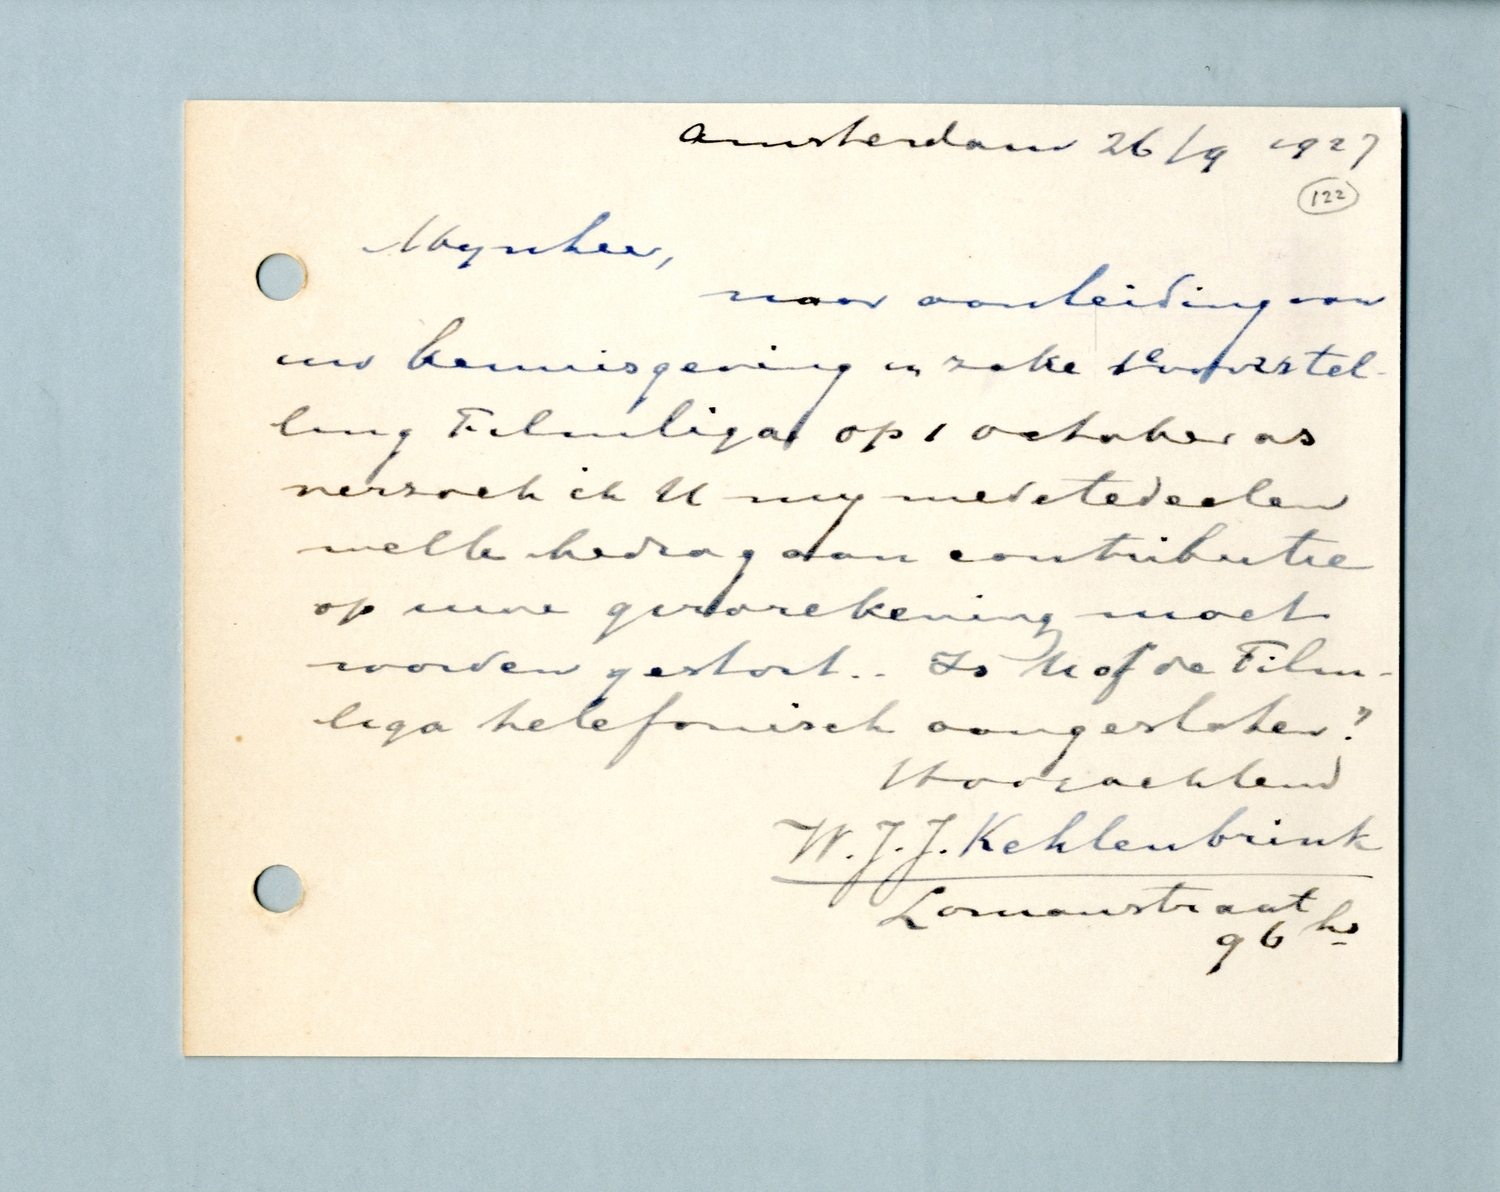 Amsterdam 26/9 1927
122
Mynheer,
naar aanleiding van
uw kennisgeving in zake 1e voorstel-
ling Filmliga op 1 october as
verzoek ik U my mede te deelen
welk bedrag aan contributie
op uwe girorekening moet
worden gestort.. Is U of de Film-
liga telefonisch aangesloten?
Hoogachtend
W.J.J. Kehlenbrink
Lomanstraat
96 hs